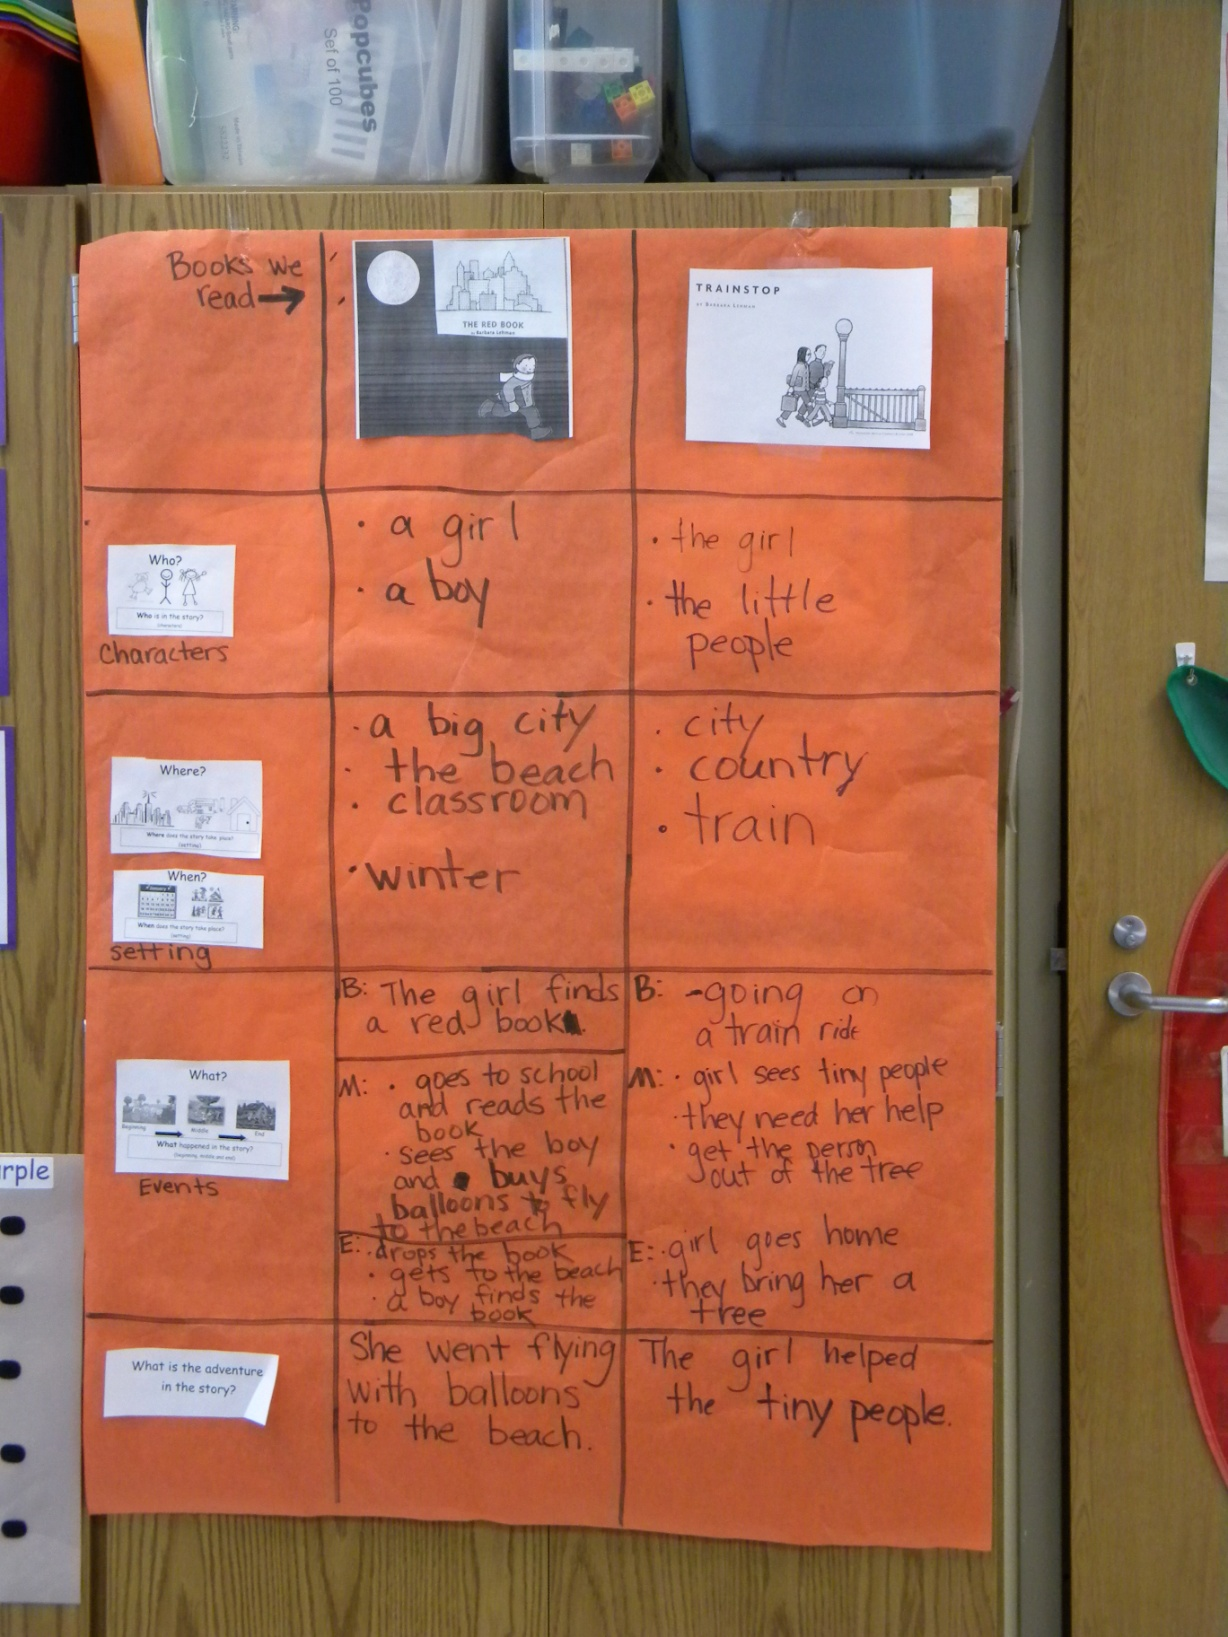 Popcubes
Set of 100
Books we
read →
THE RED BOOK
by Barbara Lehman
TRAINSTOP
BY BARBARA LEHMAN
Who?
Who is in the story?
(characters)
characters
• a girl
• a boy
• the girl
• the little
people
Where?
Where does the story take place?
(setting)
When?
When does the story take place?
(setting)
setting
• a big city
• the beach
• classroom
• winter
• city
• country
• train
What?
Beginning
Middle
End
What happened in the story?
(beginning, middle and end)
Events
B: The girl finds
a red book.
M: • goes to school
and reads the
book
• sees the boy
and buys
balloons to fly
to the beach
E: • drops the book
• gets to the beach
• a boy finds the
book
B: -going on
a train ride
M: • girl sees tiny people
• they need her help
• get the person
out of the tree
E: • girl goes home
• they bring her a
tree
What is the adventure
in the story?
She went flying
with balloons
to the beach.
The girl helped
the tiny people.
urple